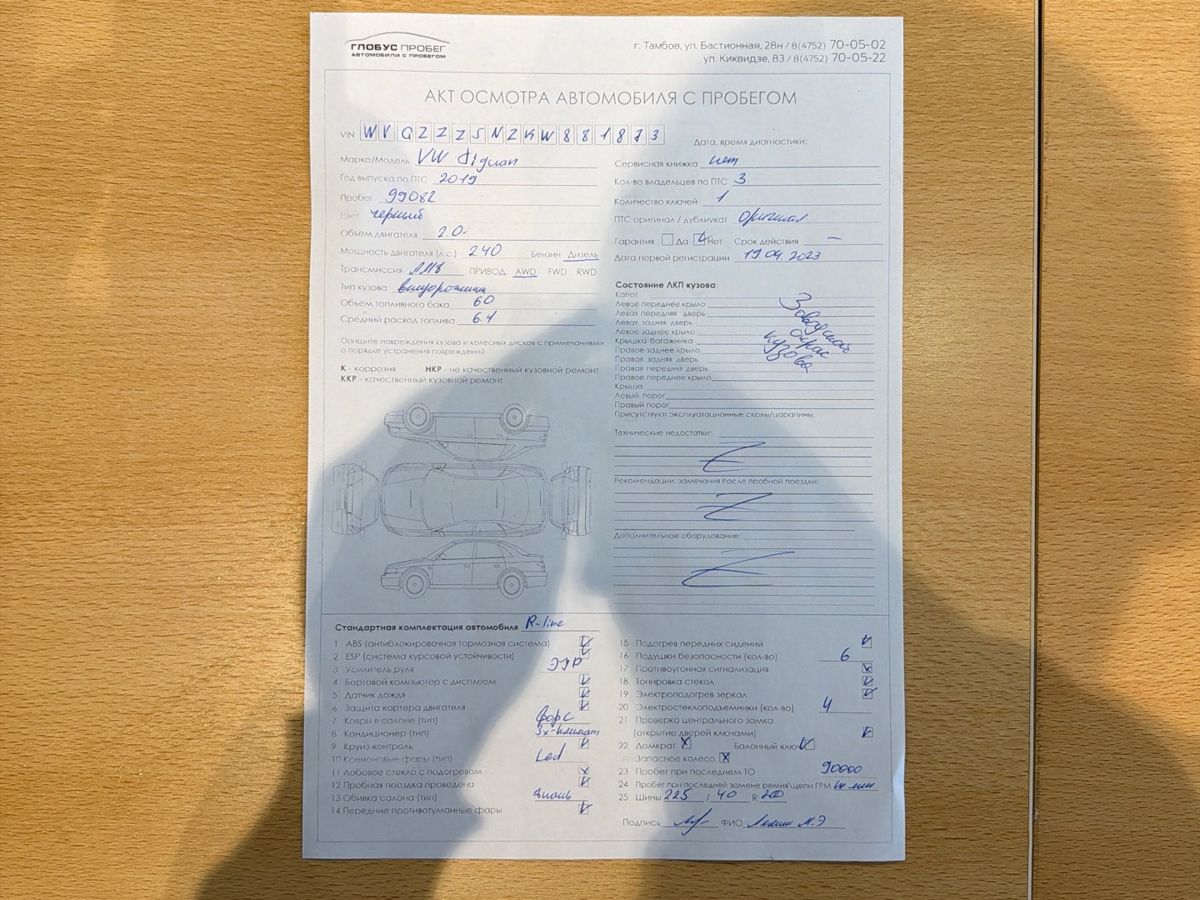 ГЛОБУС ПРОБЕГ
АВТОМОБИЛИ С ПРОБЕГОМ
г. Тамбов, ул. Бастионная, 28н / 8(4752) 70-05-02
ул. Киквидзе, 83 / 8(4752) 70-05-22
АКТ ОСМОТРА АВТОМОБИЛЯ С ПРОБЕГОМ
VIN WVGZZZ5NZKW881873
Дата, время диагностики:
Марка/Модель VW Tiguan
Год выпуска по ПТС 2019
Пробег 99082
Цвет черный
Объем двигателя 2.0
Мощность двигателя (л.с.) 240 Бензин Дизель
Трансмиссия ПРИВОД: AWD FWD RWD
Тип кузова внедорожник
Объем топливного бака 60
Средний расход топлива 6.1
Опишите повреждения кузова и колесных дисков с примечаниями
о порядке устранения повреждений
К - коррозия НКР - не качественный кузовной ремонт
ККР - качественный кузовной ремонт
Сервисная книжка нет
Кол-во владельцев по ПТС 3
Количество ключей 1
ПТС оригинал / дубликат Оригинал
Гарантия Да Нет Срок действия —
Дата первой регистрации 19.04.2023
Состояние ЛКП кузова:
Капот
Левое переднее крыло
Левая передняя дверь
Левая задняя дверь
Левое заднее крыло
Крышка багажника
Правое заднее крыло
Правая задняя дверь
Правая передняя дверь
Правое переднее крыло
Крыша
Левый порог
Правый порог
Присутствуют эксплуатационные сколы/царапины.
Заводской
окрас
кузова
Технические недостатки:
Рекомендации, замечания после пробной поездки:
Дополнительное оборудование:
Стандартная комплектация автомобиля R-line
1 ABS (антиблокировочная тормозная система)
2 ESP (система курсовой устойчивости)
3 Усилитель руля ЭГР
4 Бортовой компьютер с дисплеем
5 Датчик дождя
6 Защита картера двигателя
7 Ковры в салоне (тип) ворс
8 Кондиционер (тип) 3х-климат
9 Круиз-контроль
10 Ксеноновые фары (тип) Led
11 Лобовое стекло с подогревом
12 Пробная поездка проведена
13 Обивка салона (тип)
14 Передние противотуманные фары
15 Подогрев передних сидений
16 Подушки безопасности (кол-во) 6
17 Противоугонная сигнализация
18 Тонировка стекол
19 Электроподогрев зеркал
20 Электростеклоподъемники (кол-во) 4
21 Проверка центрального замка
(открытие дверей ключами)
22 Домкрат Балонный ключ
Запасное колесо
23 Пробег при последнем ТО 90000
24 Пробег при последней замене ремня\цепи ГРМ
25 Шины 225 / 40 R 20
Подпись ФИО